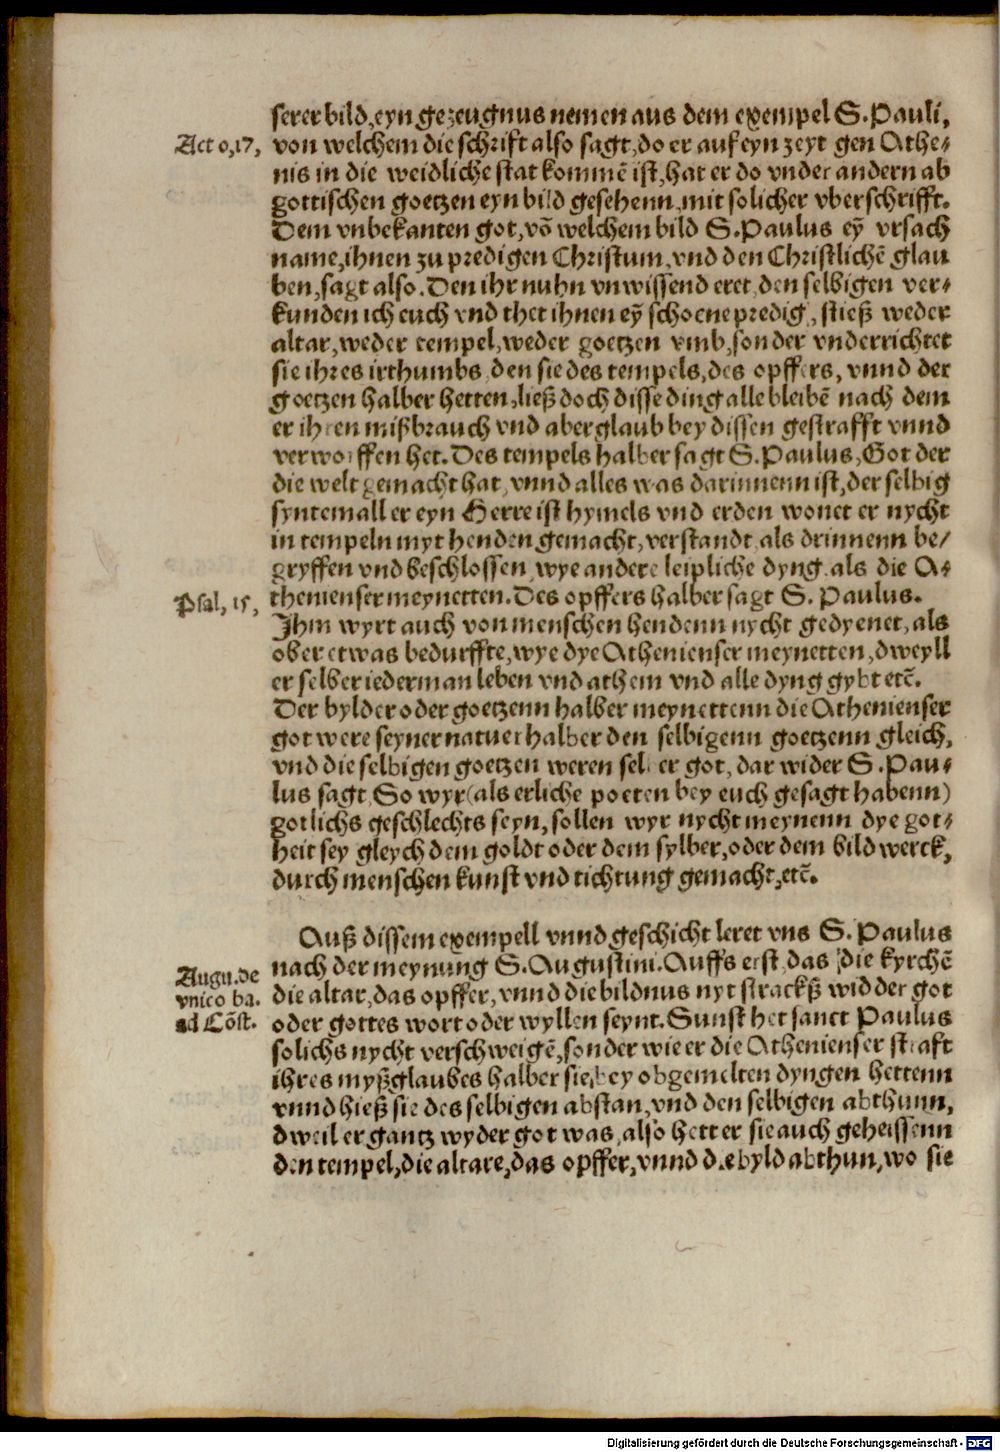 serer bild, eyn gezeugnus nemen aus dem exempel S. Pauli,
Act o,17,
von welchem die schrift also sagt, do er auf eyn zeyt gen Athe-
nis in die weidliche stat kommē ist, hat er do vnder andern ab
gottischen goetzen eyn bild gesehenn, mit solicher vberschrifft.
Dem vnbekanten got, vō welchem bild S. Paulus eȳ vrsach
name, ihnen zu predigen Christum, vnd den Christlichē glau
ben, sagt also. Den ihr nuhn vnwissend eret, den selbigen ver-
kunden ich euch vnd thet ihnen eȳ schoene predig, stieß weder
altar, weder tempel, weder goetzen vmb, sonder vnderrichtet
sie ihres irthumbs den sie des tempels, des opffers, vnnd der
goetzen halber hetten, ließ doch disse ding alle bleibē nach dem
er ihren mißbrauch vnd aberglaub bey dissen gestrafft vnnd
verworffen het. Des tempels halber sagt S. Paulus, Got der
die welt gemacht hat, vnnd alles was darinnenn ist, der selbig
syntemall er eyn Herre ist hymels vnd erden wonet er nycht
in tempeln myt henden gemacht, verstandt als drinnenn be/
gryffen vnd beschlossen, wye andere leipliche dyng als die A-
Psal, 15,
thenienser meynetten. Des opffers halber sagt S. Paulus.
Ihm wyrt auch von menschen hendenn nycht gedyenet, als
ob er etwas bedurffte, wye dye Athenienser meynetten, dweyll
er selber iederman leben vnd athem vnd alle dyng gybt etc̄.
Der bylder oder goetzenn halber meynettenn die Athenienser
got were seyner natuer halber den selbigenn goetzenn gleich,
vnd die selbigen goetzen weren selber got, dar wider S. Pau-
lus sagt, So wyr (als erliche poeten bey euch gesagt habenn)
gotlichs geschlechts seyn, sollen wyr nycht meynenn dye got-
heit sey gleych dem goldt oder dem sylber, oder dem bildwerck,
durch menschen kunst vnd tichtung gemacht, etc̄.
Auß dissem exempell vnnd geschicht leret vns S. Paulus
nach der meynung S. Augustini. Auffs erst, das die kyrchē
Augu. de
vnico ba.
ad Cōst.
die altar, das opffer, vnnd die bildnus nyt strackß widder got
oder gottes wort oder wyllen seynt. Sunst het sanct Paulus
solichs nycht verschweigē, sonder wie er die Athenienser straft
ihres myßglaubes halber sie, bey obgemelten dyngen hettenn
vnnd hieß sie des selbigen abstan, vnd den selbigen abthunn,
dweil er gantz wyder got was, also hett er sie auch geheissenn
den tempel, die altare, das opffer, vnnd die byld abthun, wo sie
Digitalisierung gefördert durch die Deutsche Forschungsgemeinschaft - DFG